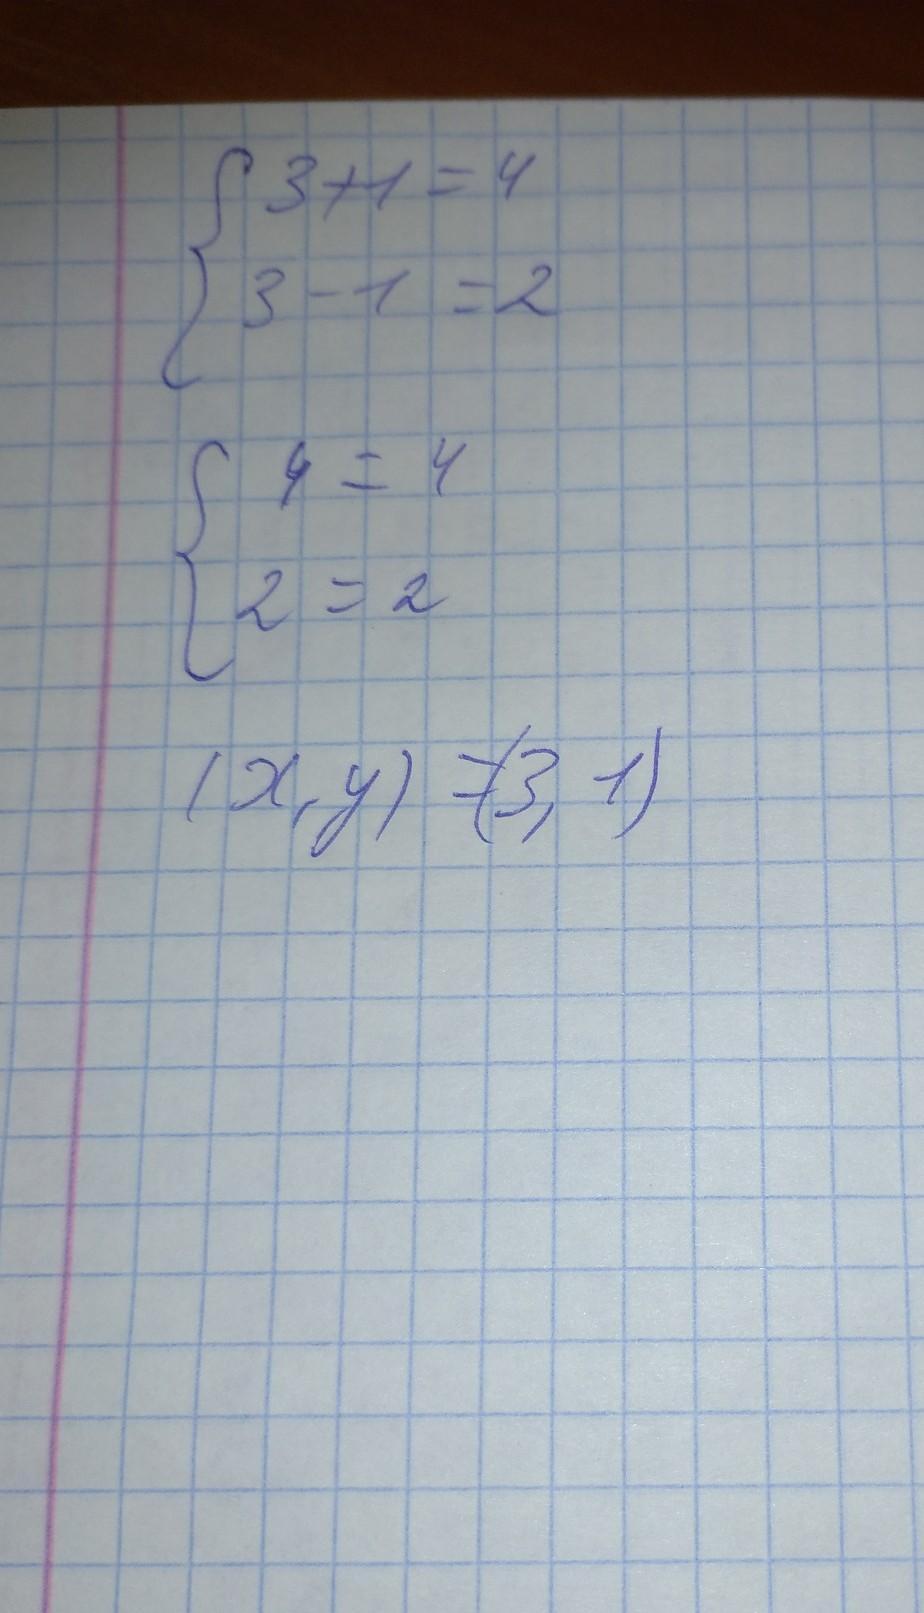 3+1=4
3-1=2
4=4
2=2
(x,y)=(3,1)